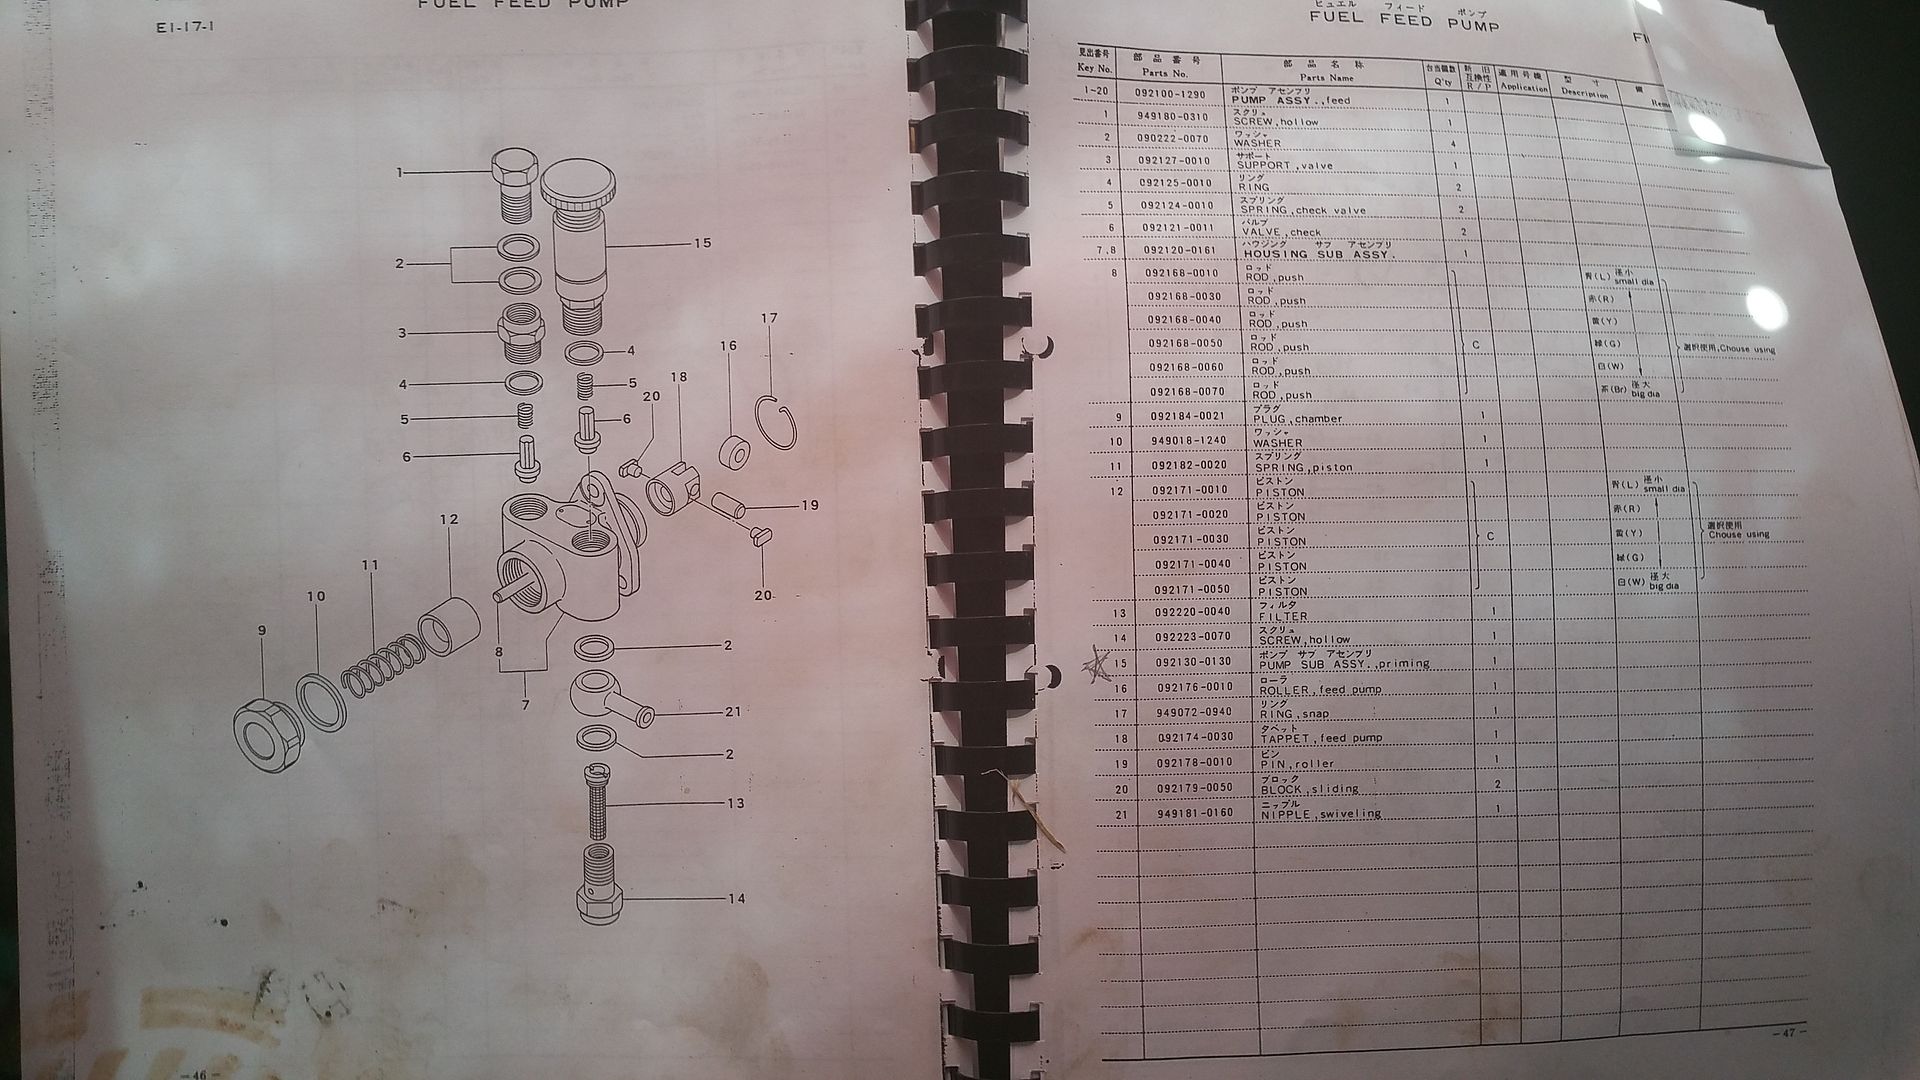 FUEL FEED PUMP
E1-17-1
1
2
3
4
5
6
15
4
5
6
17
16
18
20
19
20
12
11
10
9
8
7
2
21
2
13
14
-46-
ピュエル フィード ポンプ
FUEL FEED PUMP
見出番号 部品番号 部品名称 台当個数 新旧互換性 適用号機 型寸
Key No. Parts No. Parts Name Q'ty R/P Application Description
1~20 092100-1290 ポンプ アセンブリ
PUMP ASSY.,feed 1
1 949180-0310 スクリュ
SCREW,hollow 1
2 090222-0070 ワッシャ
WASHER 4
3 092127-0010 サポート
SUPPORT,valve 1
4 092125-0010 リング
RING 2
5 092124-0010 スプリング
SPRING,check valve 2
6 092121-0011 バルブ
VALVE,check 2
7.8 092120-0161 ハウジング サブ アセンブリ
HOUSING SUB ASSY. 1
8 092168-0010 ロッド 青(L) 径小
ROD,push small dia
092168-0030 ロッド 赤(R)
ROD,push
092168-0040 ロッド 黄(Y)
ROD,push
092168-0050 ロッド C 緑(G) 選択使用,Chouse using
ROD,push
092168-0060 ロッド 白(W)
ROD,push
092168-0070 ロッド 茶(Br) 径大
ROD,push big dia
9 092184-0021 プラグ
PLUG,chamber 1
10 949018-1240 ワッシャ
WASHER 1
11 092182-0020 スプリング
SPRING,piston 1
12 092171-0010 ピストン 青(L) 径小
PISTON small dia
092171-0020 ピストン 赤(R)
PISTON
092171-0030 ピストン C 黄(Y) 選択使用
PISTON Chouse using
092171-0040 ピストン 緑(G)
PISTON
092171-0050 ピストン 白(W) 径大
PISTON big dia
13 092220-0040 フィルタ
FILTER 1
14 092223-0070 スクリュ
SCREW,hollow 1
15 092130-0130 ポンプ サブ アセンブリ
PUMP SUB ASSY.,priming 1
16 092176-0010 ローラ
ROLLER,feed pump 1
17 949072-0940 リング
RING,snap 1
18 092174-0030 タペット
TAPPET,feed pump 1
19 092178-0010 ピン
PIN,roller 1
20 092179-0050 ブロック
BLOCK,sliding 2
21 949181-0160 ニップル
NIPPLE,swiveling 1
-47-